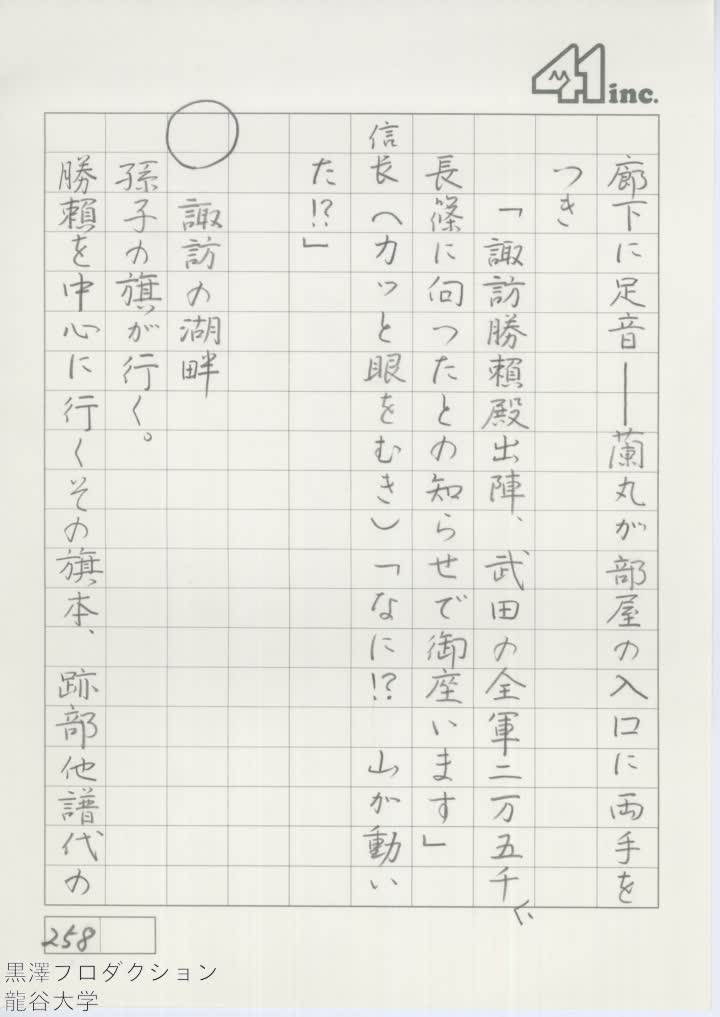 41 inc.
廊下に足音——蘭丸が部屋の入口に両手を
つき
「諏訪勝頼殿出陣、武田の全軍二万五千
長篠に向つたとの知らせで御座います」
信長（カッと眼をむき）「なに!?　山が動い
た!?」
○　諏訪の湖畔
孫子の旗が行く。
勝頼を中心に行くその旗本、跡部他譜代の
258
黒澤プロダクション
龍谷大学